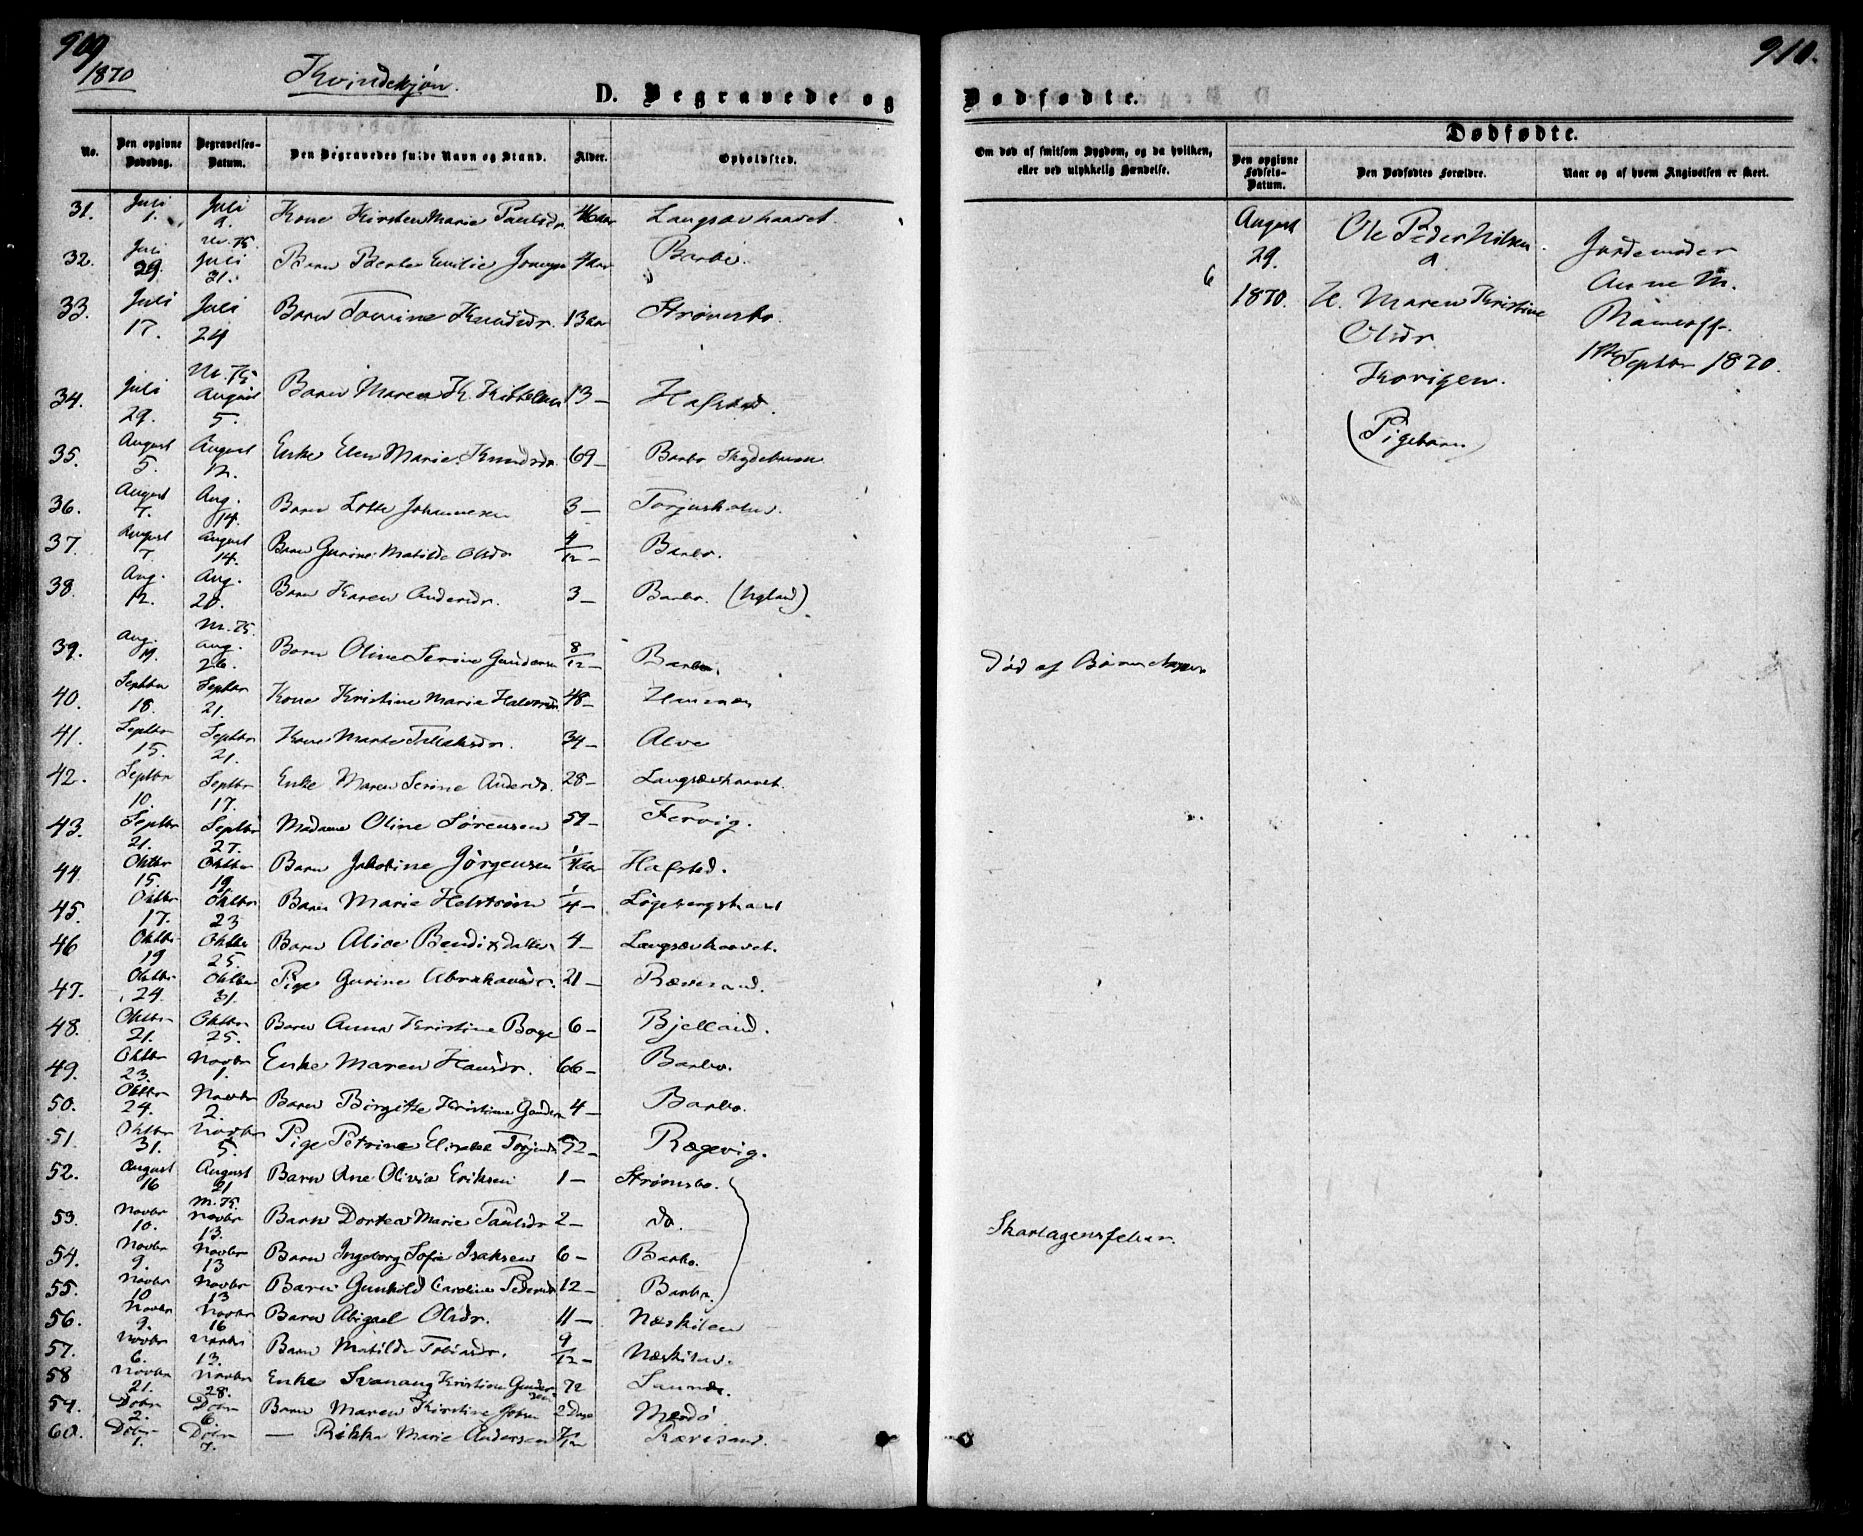 909
910.
1870
Kvindekjøn.
D. Begravede og Dødfødte.
Dødfødte.
No.
Den opgivne Dødsdag.
Begravelses-Datum.
Den Begravedes fulde Navn og Stand.
Alder.
Opholdsted.
Om død af smitsom Sygdom, og da hvilken, eller ved ulykkelig Hændelse.
Den opgivne Fødsels-Datum.
Den Dødfødtes Forældre.
Naar og af hvem Angivelsen er skeet.
31. Juli 1. Juli 9. Kone Kirsten Marie Paulsdr. 46 aar Langsævhaavet
32. Juli 29. Juli 31. Barn Berte Emilie 4 aar Barbo.
33. Juli 17. Juli 24 Barn Tomine Knudsdr. 13 aar Strømsbo.
34. Juli 29. August 5. Barn Maren K. 13 — Hafsted.
35. August 5. August 12. Enke Elen Marie Knudsdr. 69 — Barbo
36. August 7. Aug. 14. Barn Lotte Johannesen 3 — Torjusholm.
37. August 7. August 14. Barn Gurine Matilde Olsdr 4/12 — Barbo.
38. Aug. 12. Aug. 20. Barn Karen Andersdr. 3 — Barbo. (Nyland)
39. Aug. 19. Aug. 26. Barn Oline Serine Gundersen 8/12 — Barbo. Død af
40. Septbr 18. Septbr 21. Kone Kristine Marie Halvorsdr 48 —
41. Septbr 15. Septbr 21. Kone Marte Tellefsdr. 34 — Alve
42. Septbr 10. Septbr 17. Enke Maren Serine Andersdr. 28 — Langsævhaavet.
43. Septbr 21. Septbr 27. Madame Oline Sørensen 59 — Fervig.
44 Oktbr 15. Oktbr 19 Barn Jakobine Jørgensen 1/4 aar Hafsted.
45. Oktbr 17. Oktbr 23 Barn Marie Helstrøm 1/4 —
46 Oktbr 19 Oktbr 25. Barn Alice Bendixdatter 4 — Langsævhaavet.
47. Oktbr 24. Oktbr 31. Pige Gurine Abrahamsdr. 21 — Rævesand.
48. Oktbr 21. Oktbr 25. Barn Anna Kristine Boye 6 — Bjelland.
49. Oktbr 23. Novbr 1. Enke Maren Hansdr. 66 — Barbo.
50. Oktbr 24. Novbr 2. Barn Birgitte Kristine Gundersen 4 — Barbo.
51. Oktbr 31. Novbr 5. Pige Petrine Elisabet 52 — Rægevig.
52. August 16 August 21 Barn Ane Olivia Eriksen 1 — Strømsbo.
53. Novbr 10. Novbr 13. Barn Dortea Marie Paulsdr 2 — do.
54. Novbr 9. Novbr 13 Barn Ingeborg Sofie Isaksen 6 — Barbo.
55. Novbr 10 Novbr 13 Barn Gunhild Caroline Pedersdr 12 — Barbo.
Skarlagensfeber.
56. Novbr 9. Novbr 16 Barn Abigael Olsdr. 11 — Neskilen
57. Novbr 6. Novbr 13. Barn Matilde Tobiasdr. 9/12 — Neskilen.
58 Novbr 21. Novbr 28. Enke Svanaug Kristine Gundersen 72
59. Dcbr 2. Dcbr 6. Barn Maren Kirstine 2 Dage Merdø
60. Dcbr 1. Dcbr 7. — Rikka Marie Andersen 7/12 Rævesand.
6
August 29. 1870.
Ole Peder Nilsen
&
H. Maren Kristine
Olsdr.
Kovigen.
(Pigebarn)
Jordemoder
Anne M.
1ste Septbr 1870.